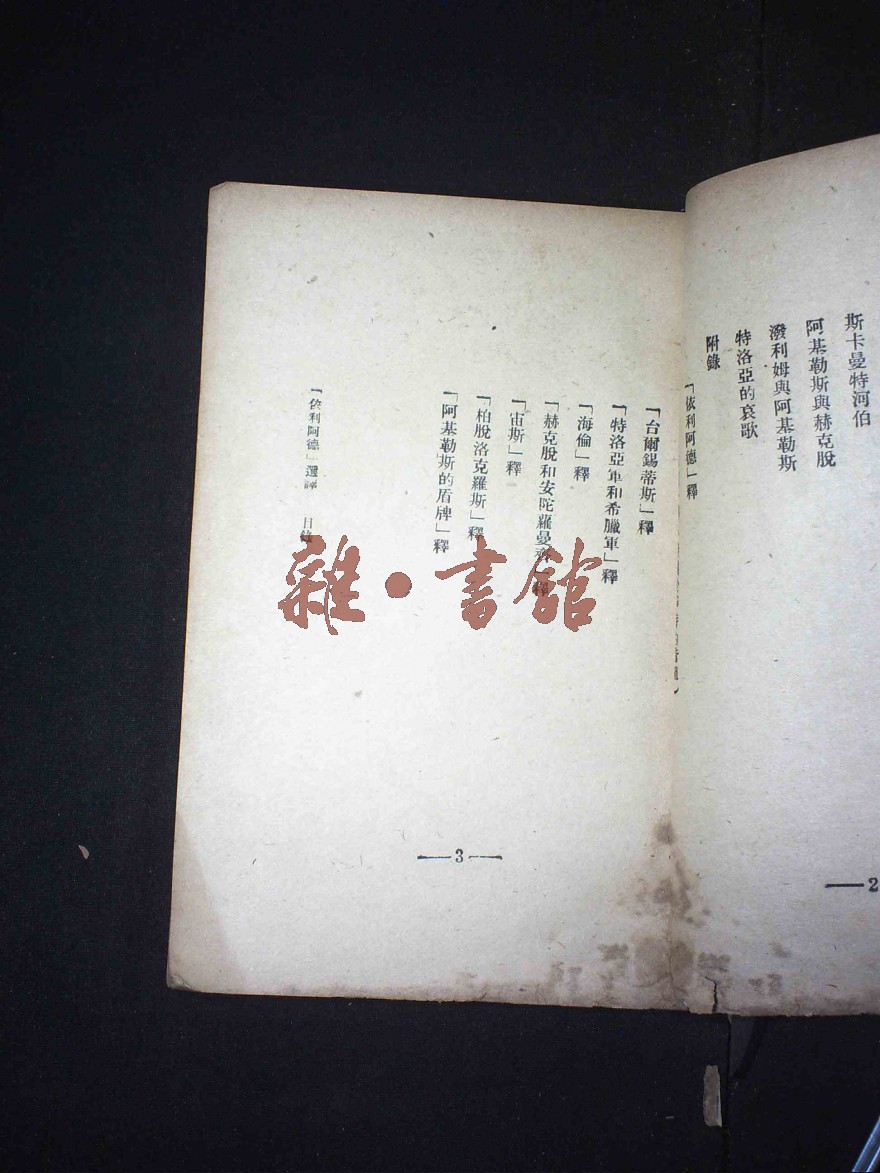 斯卡曼特河伯
阿基勒斯與赫克脫
潑利姆與阿基勒斯
特洛亞的哀歌
附錄
「依利阿德」釋
2
「台爾錫蒂斯」釋
「特洛亞軍和希臘軍」釋
「海倫」釋
「赫克脫和安陀蘿曼齊」釋
「宙斯」釋
「柏脫洛克羅斯」釋
「阿基勒斯的盾牌」釋
「依利阿德」選譯 目錄
3
雜·書館